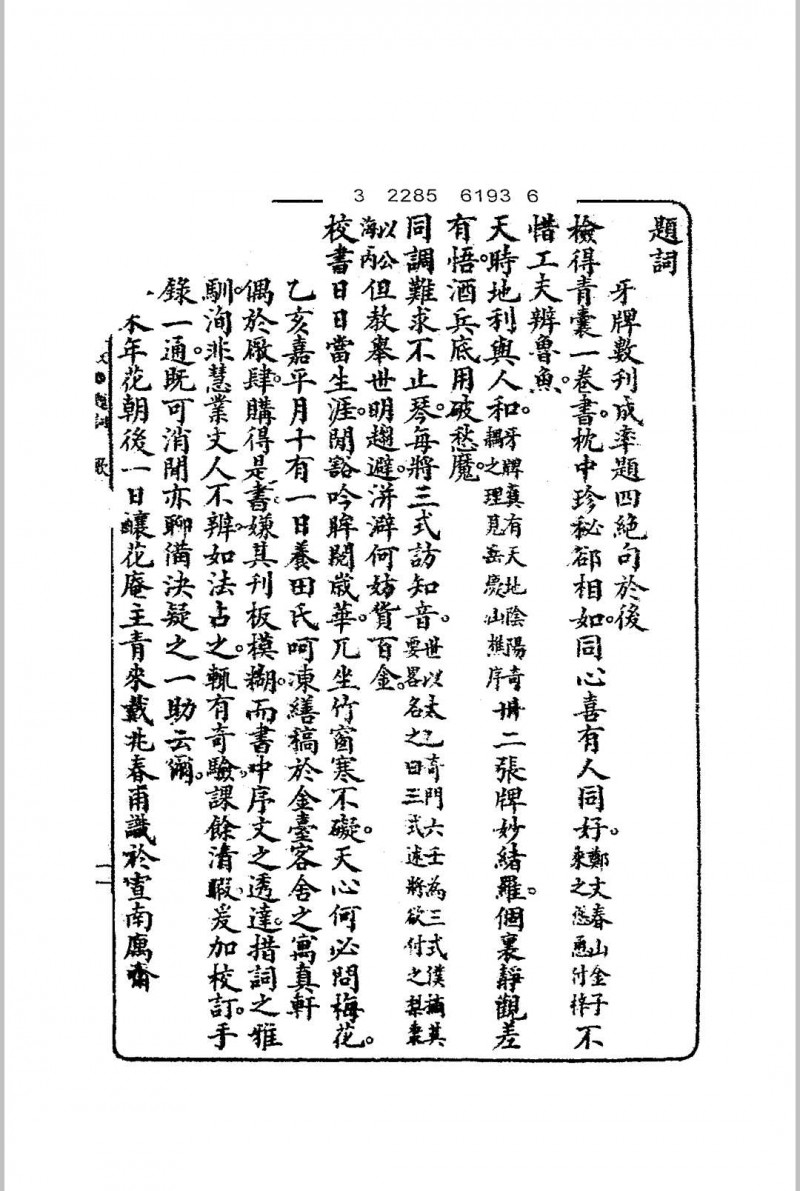 3 2285 6193 6
題詞
牙牌數刊成率題四絕句於後
檢得青囊一卷書。枕中珍秘郤相如。同心喜有人同好。鄭文春山金子乘之慫恿付梓不
惜工夫辨魯魚。
天時地利與人和。牙牌真有天地陰陽奇耦之理見岳慶山樵序卅二張牌妙緒羅。個裏靜觀差
有悟。酒兵底用破愁魔。
同調難求不止琴。每將三式訪知音。世以太乙奇門六壬為三式僕摘其要畧名之曰三式述將欲付之梨棗
以公海內但教舉世明趨避。洴澼何妨貨百金。
校書日日當生涯。閒豁吟眸閱歲華。兀坐竹窗寒不礙。天心何必問梅花。
乙亥嘉平月十有一日養田氏呵凍繕稿於金臺客舍之寓真軒
偶於廠肆購得是書。嫌其刊板模糊。而書中序文之透達。措詞之雅
馴。洵非慧業文人不辨。如法占之。輒有奇驗。課餘清暇。爰加校訂。手
錄一通。既可消閒亦聊備決疑之一助云爾。
年花朝後一日釀花庵主青來戴兆春甫識於宣南寓齋